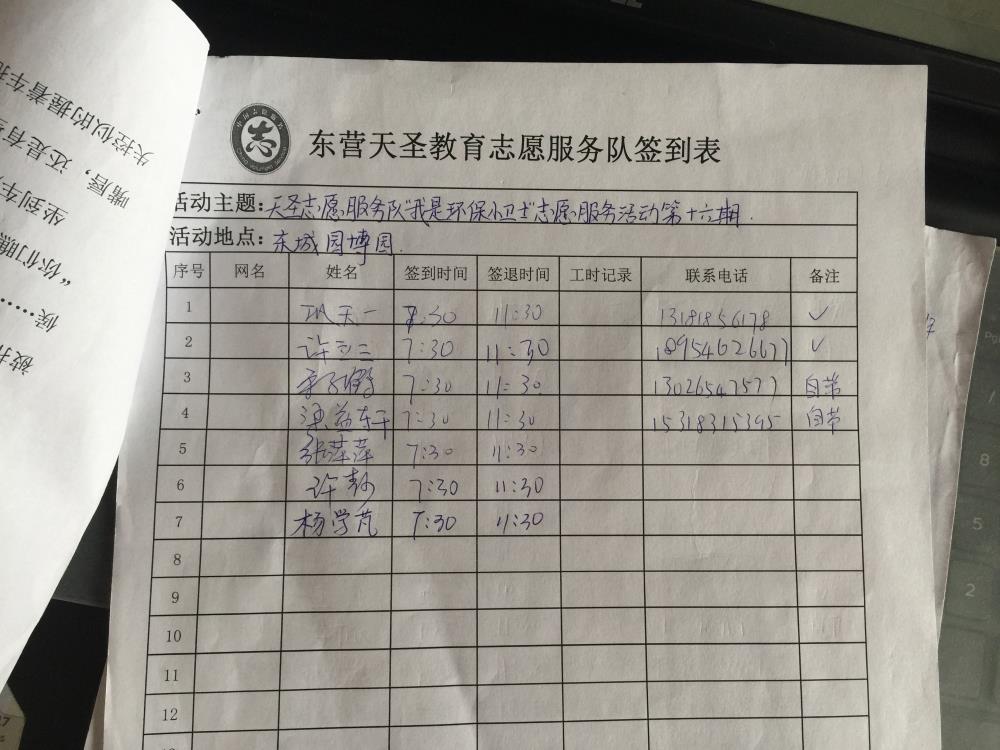 中国志愿服务
志
东营天圣教育志愿服务队签到表
活动主题：天圣志愿服务队"我是环保小卫士"志愿服务活动第十六期.
活动地点：东城园博园.
序号 网名 姓名 签到时间 签退时间 工时记录 联系电话 备注
1 天一 7:30 11:30 13181856178 ✓
2 许立三 7:30 11:30 18954626677 ✓
3 7:30 11:30 13026547577 自带
4 梁益东 7:30 11:30 15318315395 自带
5 张萍萍 7:30 11:30
6 许 7:30 11:30
7 杨学芃 7:30 11:30
8
9
10
11
12
失控似的握着车把
嘴唇，还是有
坐到车
"你们瞧
候……
被扎
8
5
2